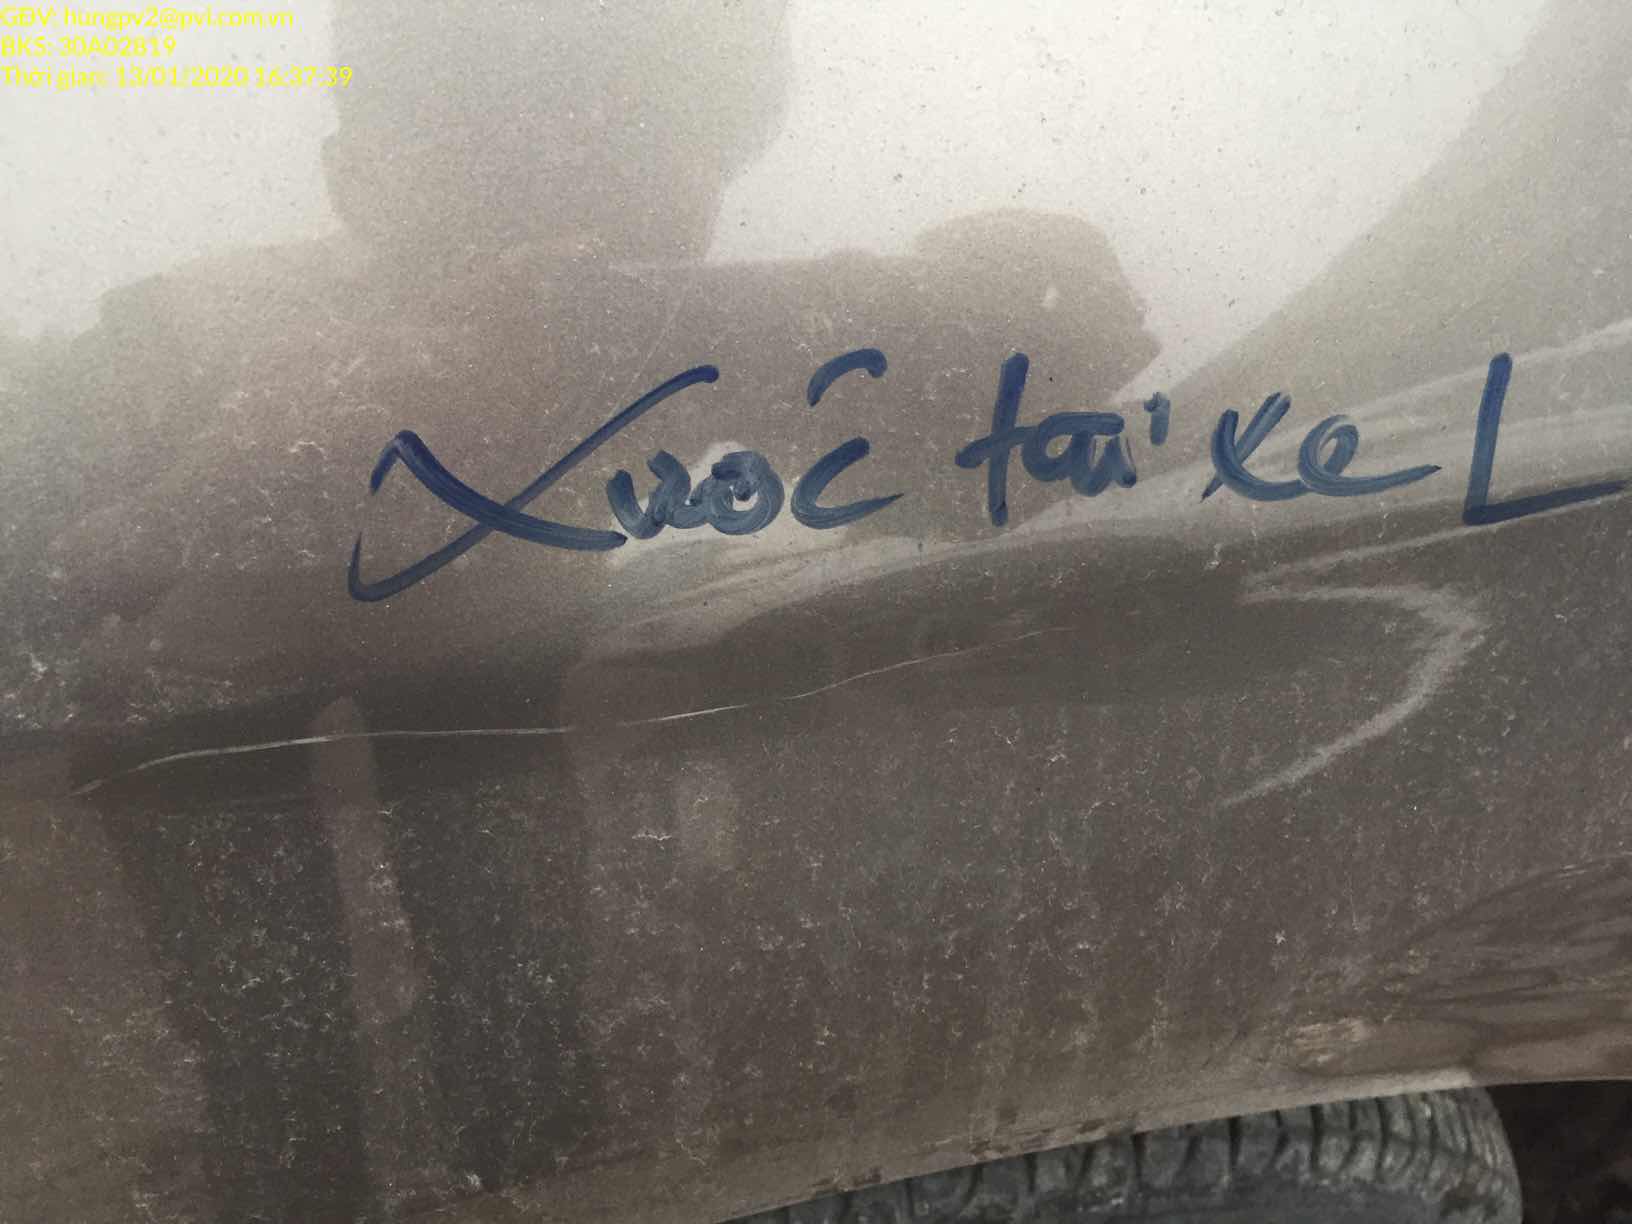 GĐV: hungpv2@pvi.com.vn
BKS: 30A02819
Thời gian: 13/01/2020 16:37:39
Xước tai xe L